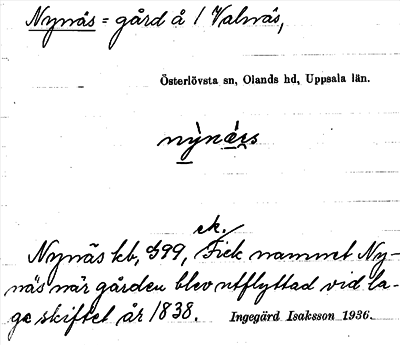 Nynäs = gård å 1 Valnäs,
Österlövsta sn, Olands hd, Uppsala län.
ek.
Nynäs kb, G99, Fick namnet Ny-
näs när gården blev utflyttad vid la-
ge skiftet år 1838. Ingegärd Isaksson 1936.